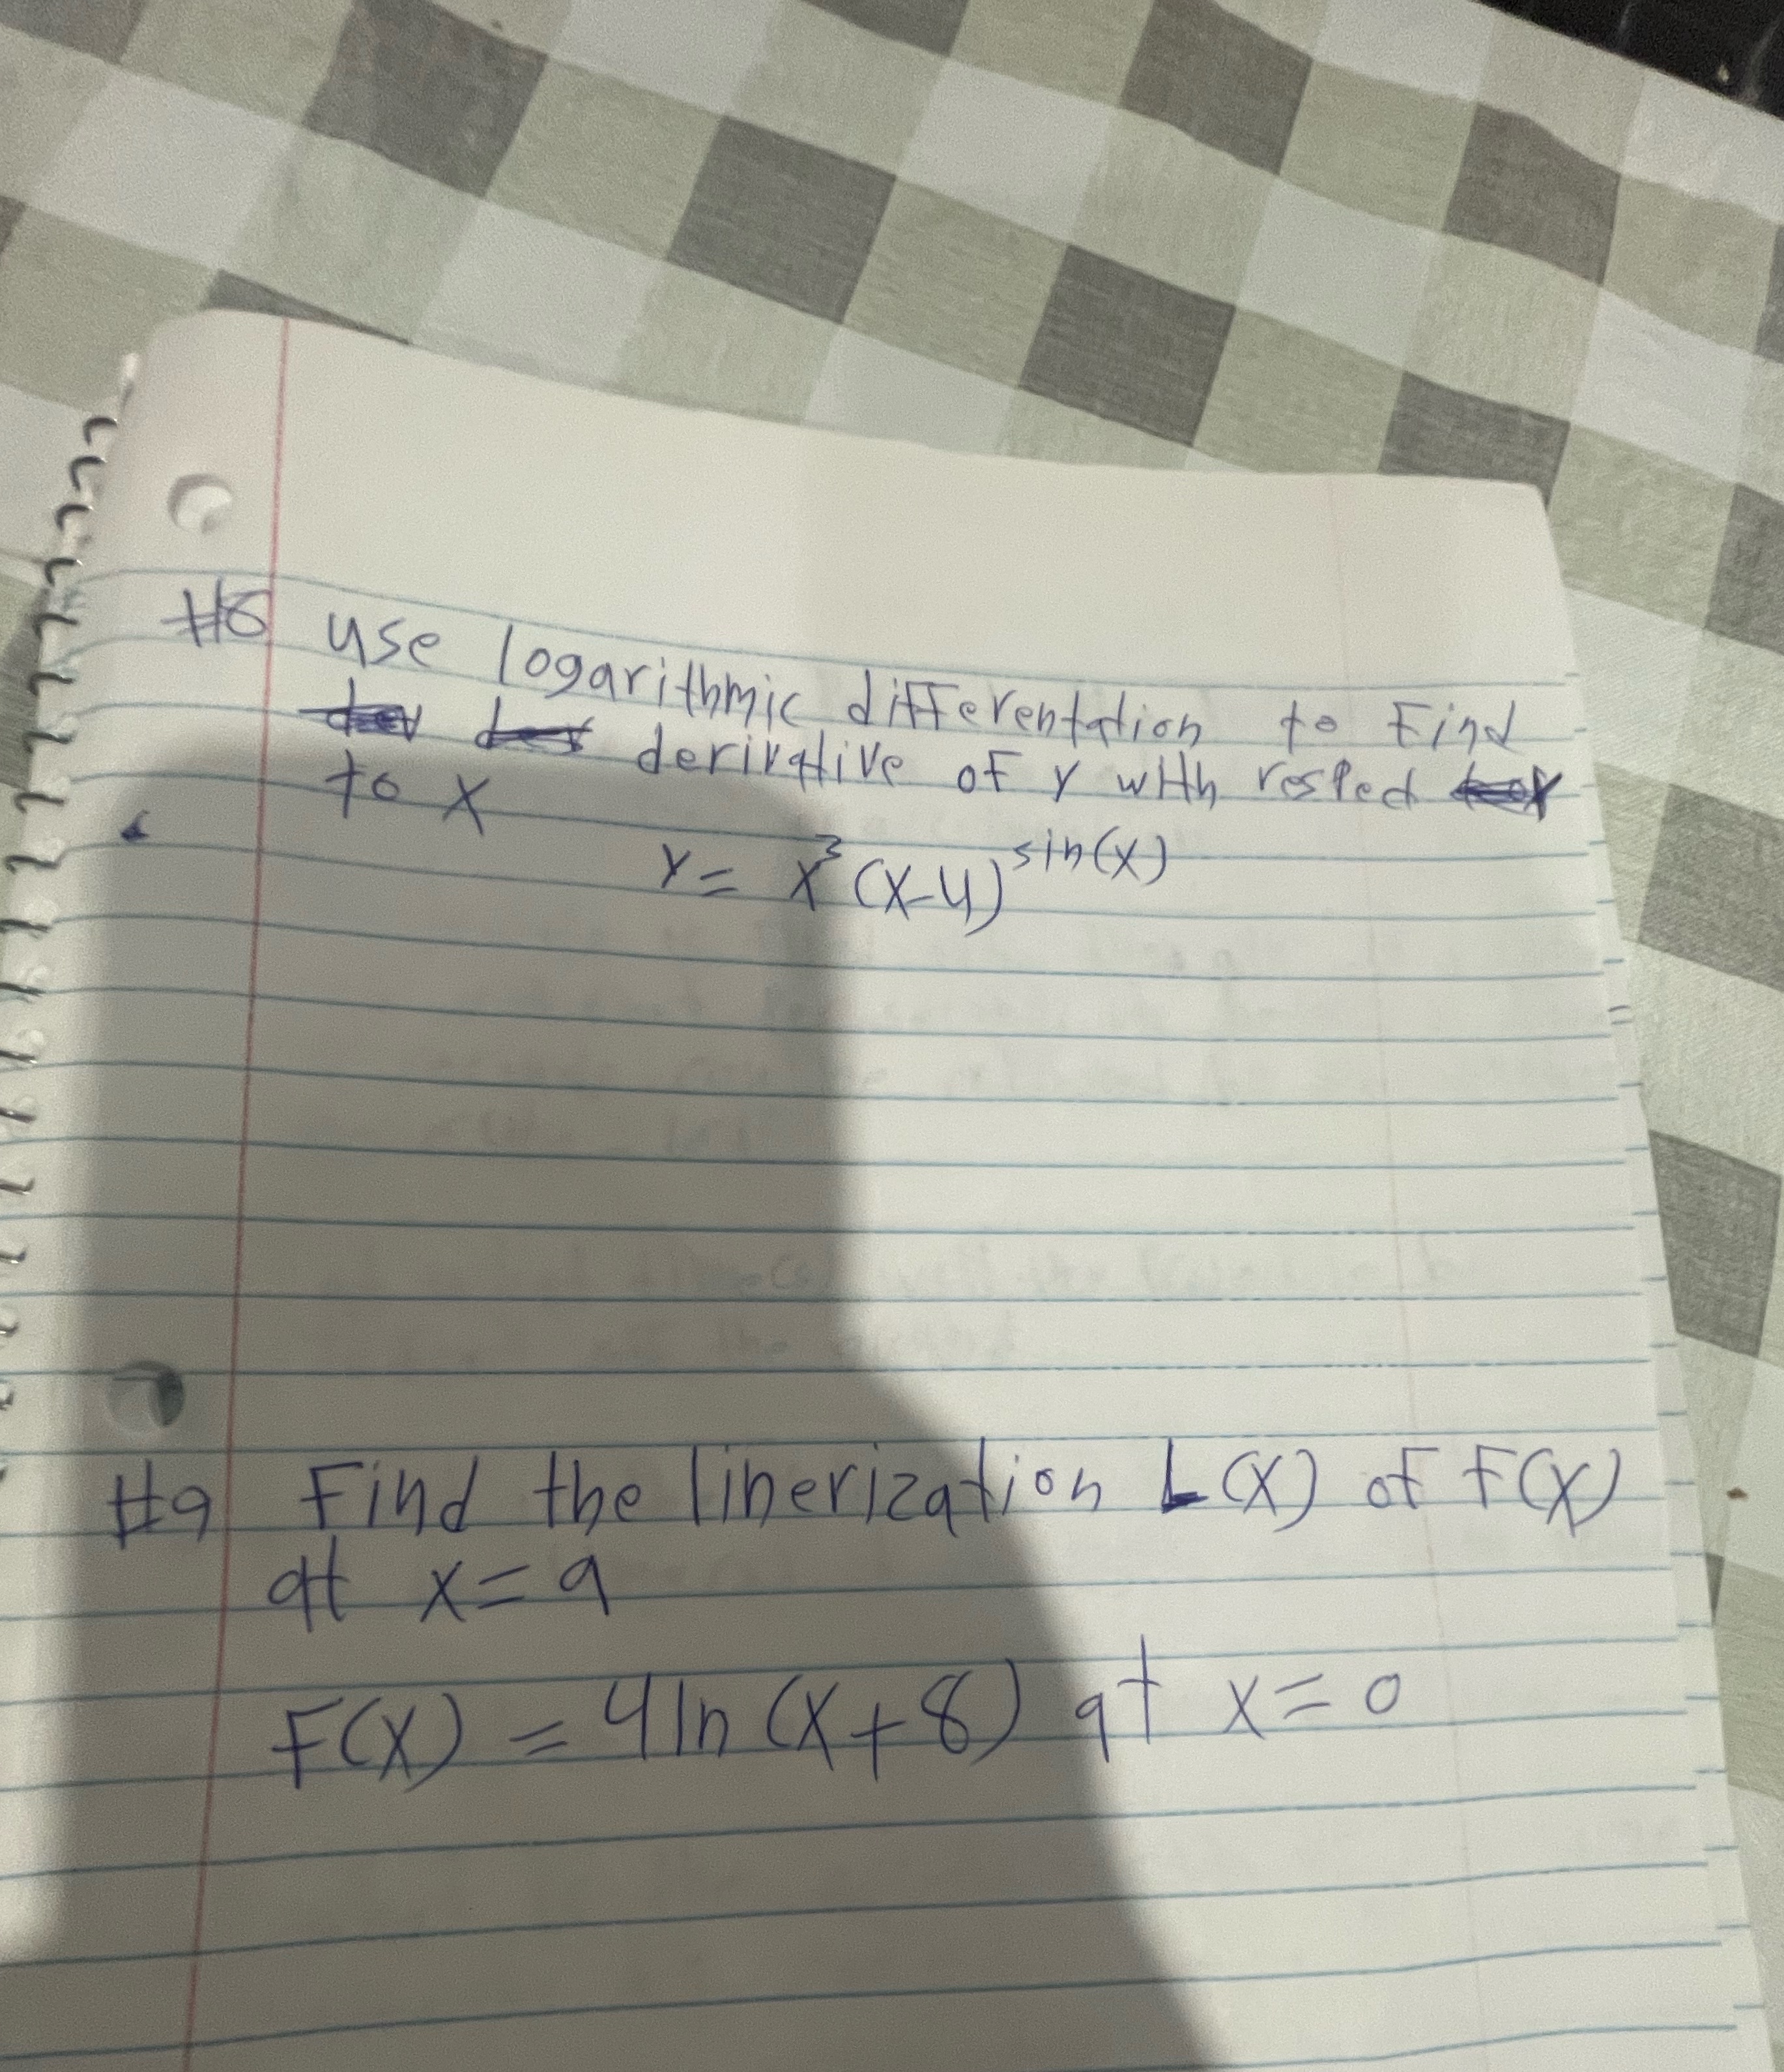 #8 use logarithmic differentation to Find
derivative of y with respect
to x
y = x³(x-4)^sin(x)
#9 Find the linerization L(x) of F(x)
at x = a
F(x) = 4 ln (x+8) at x = 0